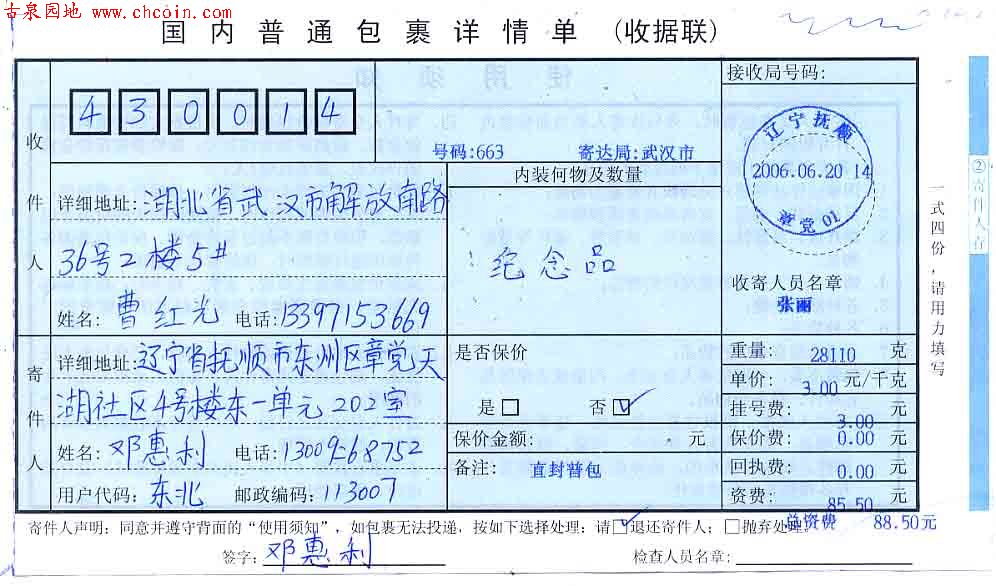 古泉园地 www.chcoin.com
国内普通包裹详情单 (收据联)
接收局号码:
430014
号码:663 寄达局:武汉市
收件人
内装何物及数量
详细地址:湖北省武汉市解放南路
36号2楼5#
姓名:曹红光 电话:13397153669
纪念品
辽宁抚顺
2006.06.20 14
章党01
收寄人员名章
张丽
寄件人
详细地址:辽宁省抚顺市东州区章党天
湖社区4号楼东一单元202室
姓名:邓惠利 电话:13009268752
用户代码:东北 邮政编码:113007
是否保价
是□ 否☑
保价金额: 元
备注: 直封普包
重量: 28110 克
单价: 3.00 元/千克
挂号费: 3.00 元
保价费: 0.00 元
回执费: 0.00 元
资费: 85.50 元
总资费 88.50元
寄件人声明:同意并遵守背面的“使用须知”,如包裹无法投递,按如下选择处理:请☑退还寄件人;□抛弃处理。
签字:邓惠利 检查人员名章:
②寄件人存
一式四份,请用力填写